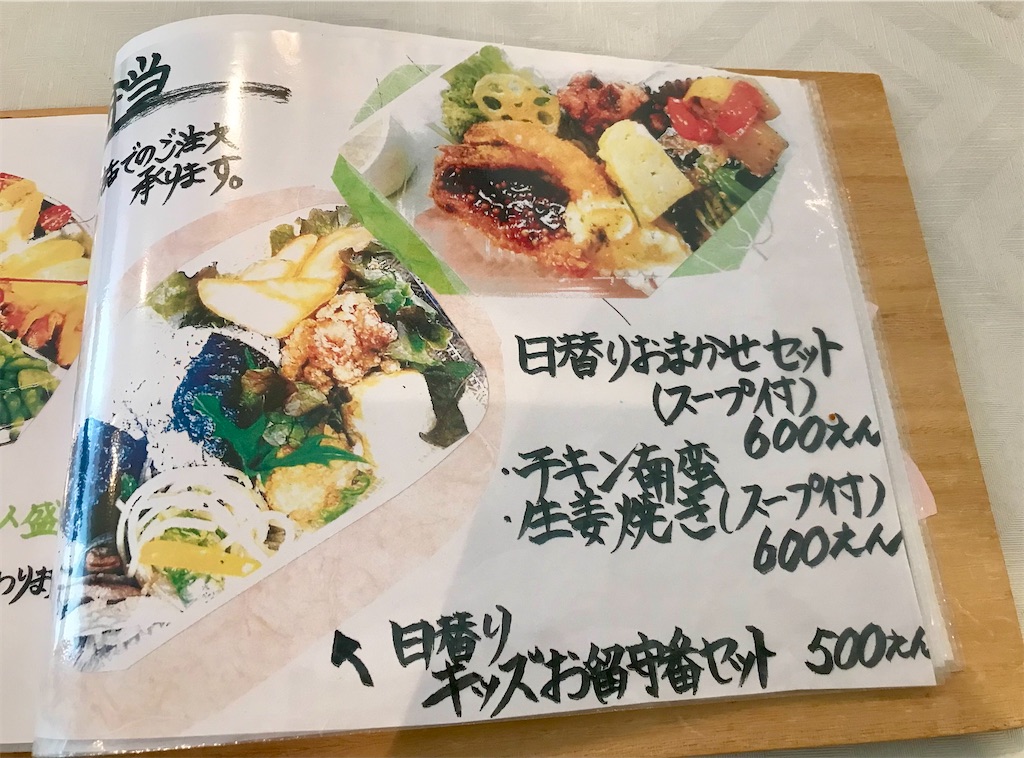 当
店でのご注文
承ります。
日替りおまかせセット
(スープ付)
600えん
・チキン南蛮
・生姜焼き(スープ付)
600えん
日替り
キッズお留守番セット 500えん
盛
わりま